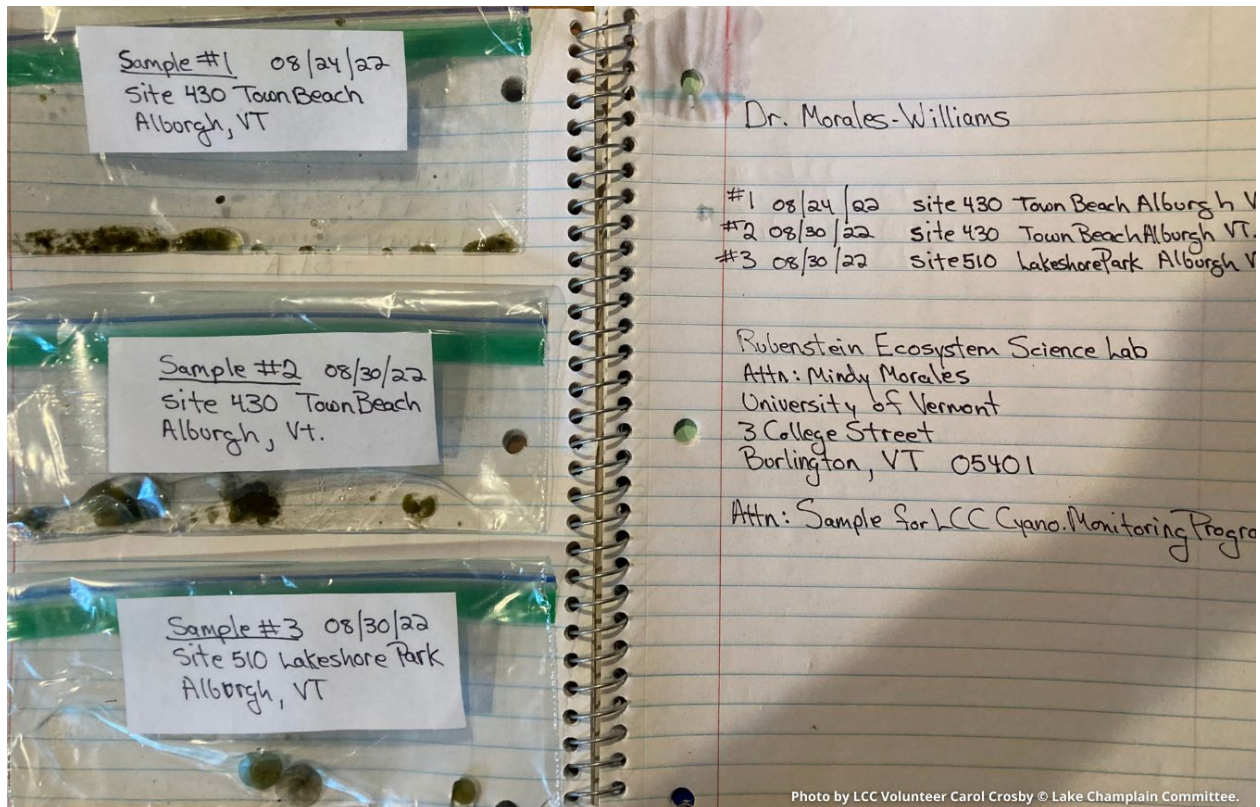 Sample #1 08/24/22
Site 430 Town Beach
Alborgh, VT
Sample #2 08/30/22
Site 430 Town Beach
Alburgh, Vt.
Sample #3 08/30/22
Site 510 Lakeshore Park
Alborgh, VT
Dr. Morales-Williams
#1 08/24/22 site 430 Town Beach Alburgh V
#2 08/30/22 site 430 Town Beach Alburgh VT.
#3 08/30/22 site 510 Lakeshore Park Alburgh V
Rubenstein Ecosystem Science Lab
Attn: Mindy Morales
University of Vermont
3 College Street
Burlington, VT 05401
Attn: Sample for LCC Cyano. Monitoring Progra
Photo by LCC Volunteer Carol Crosby © Lake Champlain Committee.